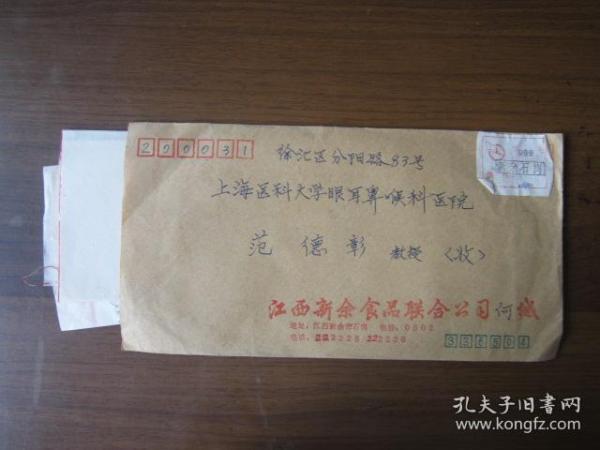 200031
徐汇区汾阳路83号
上海医科大学眼耳鼻喉科医院
范德彰 教授〈收〉
江西新余食品联合公司何缄
地址：江西新余市 电挂：0602
电话：
孔夫子旧书网
www.kongfz.com